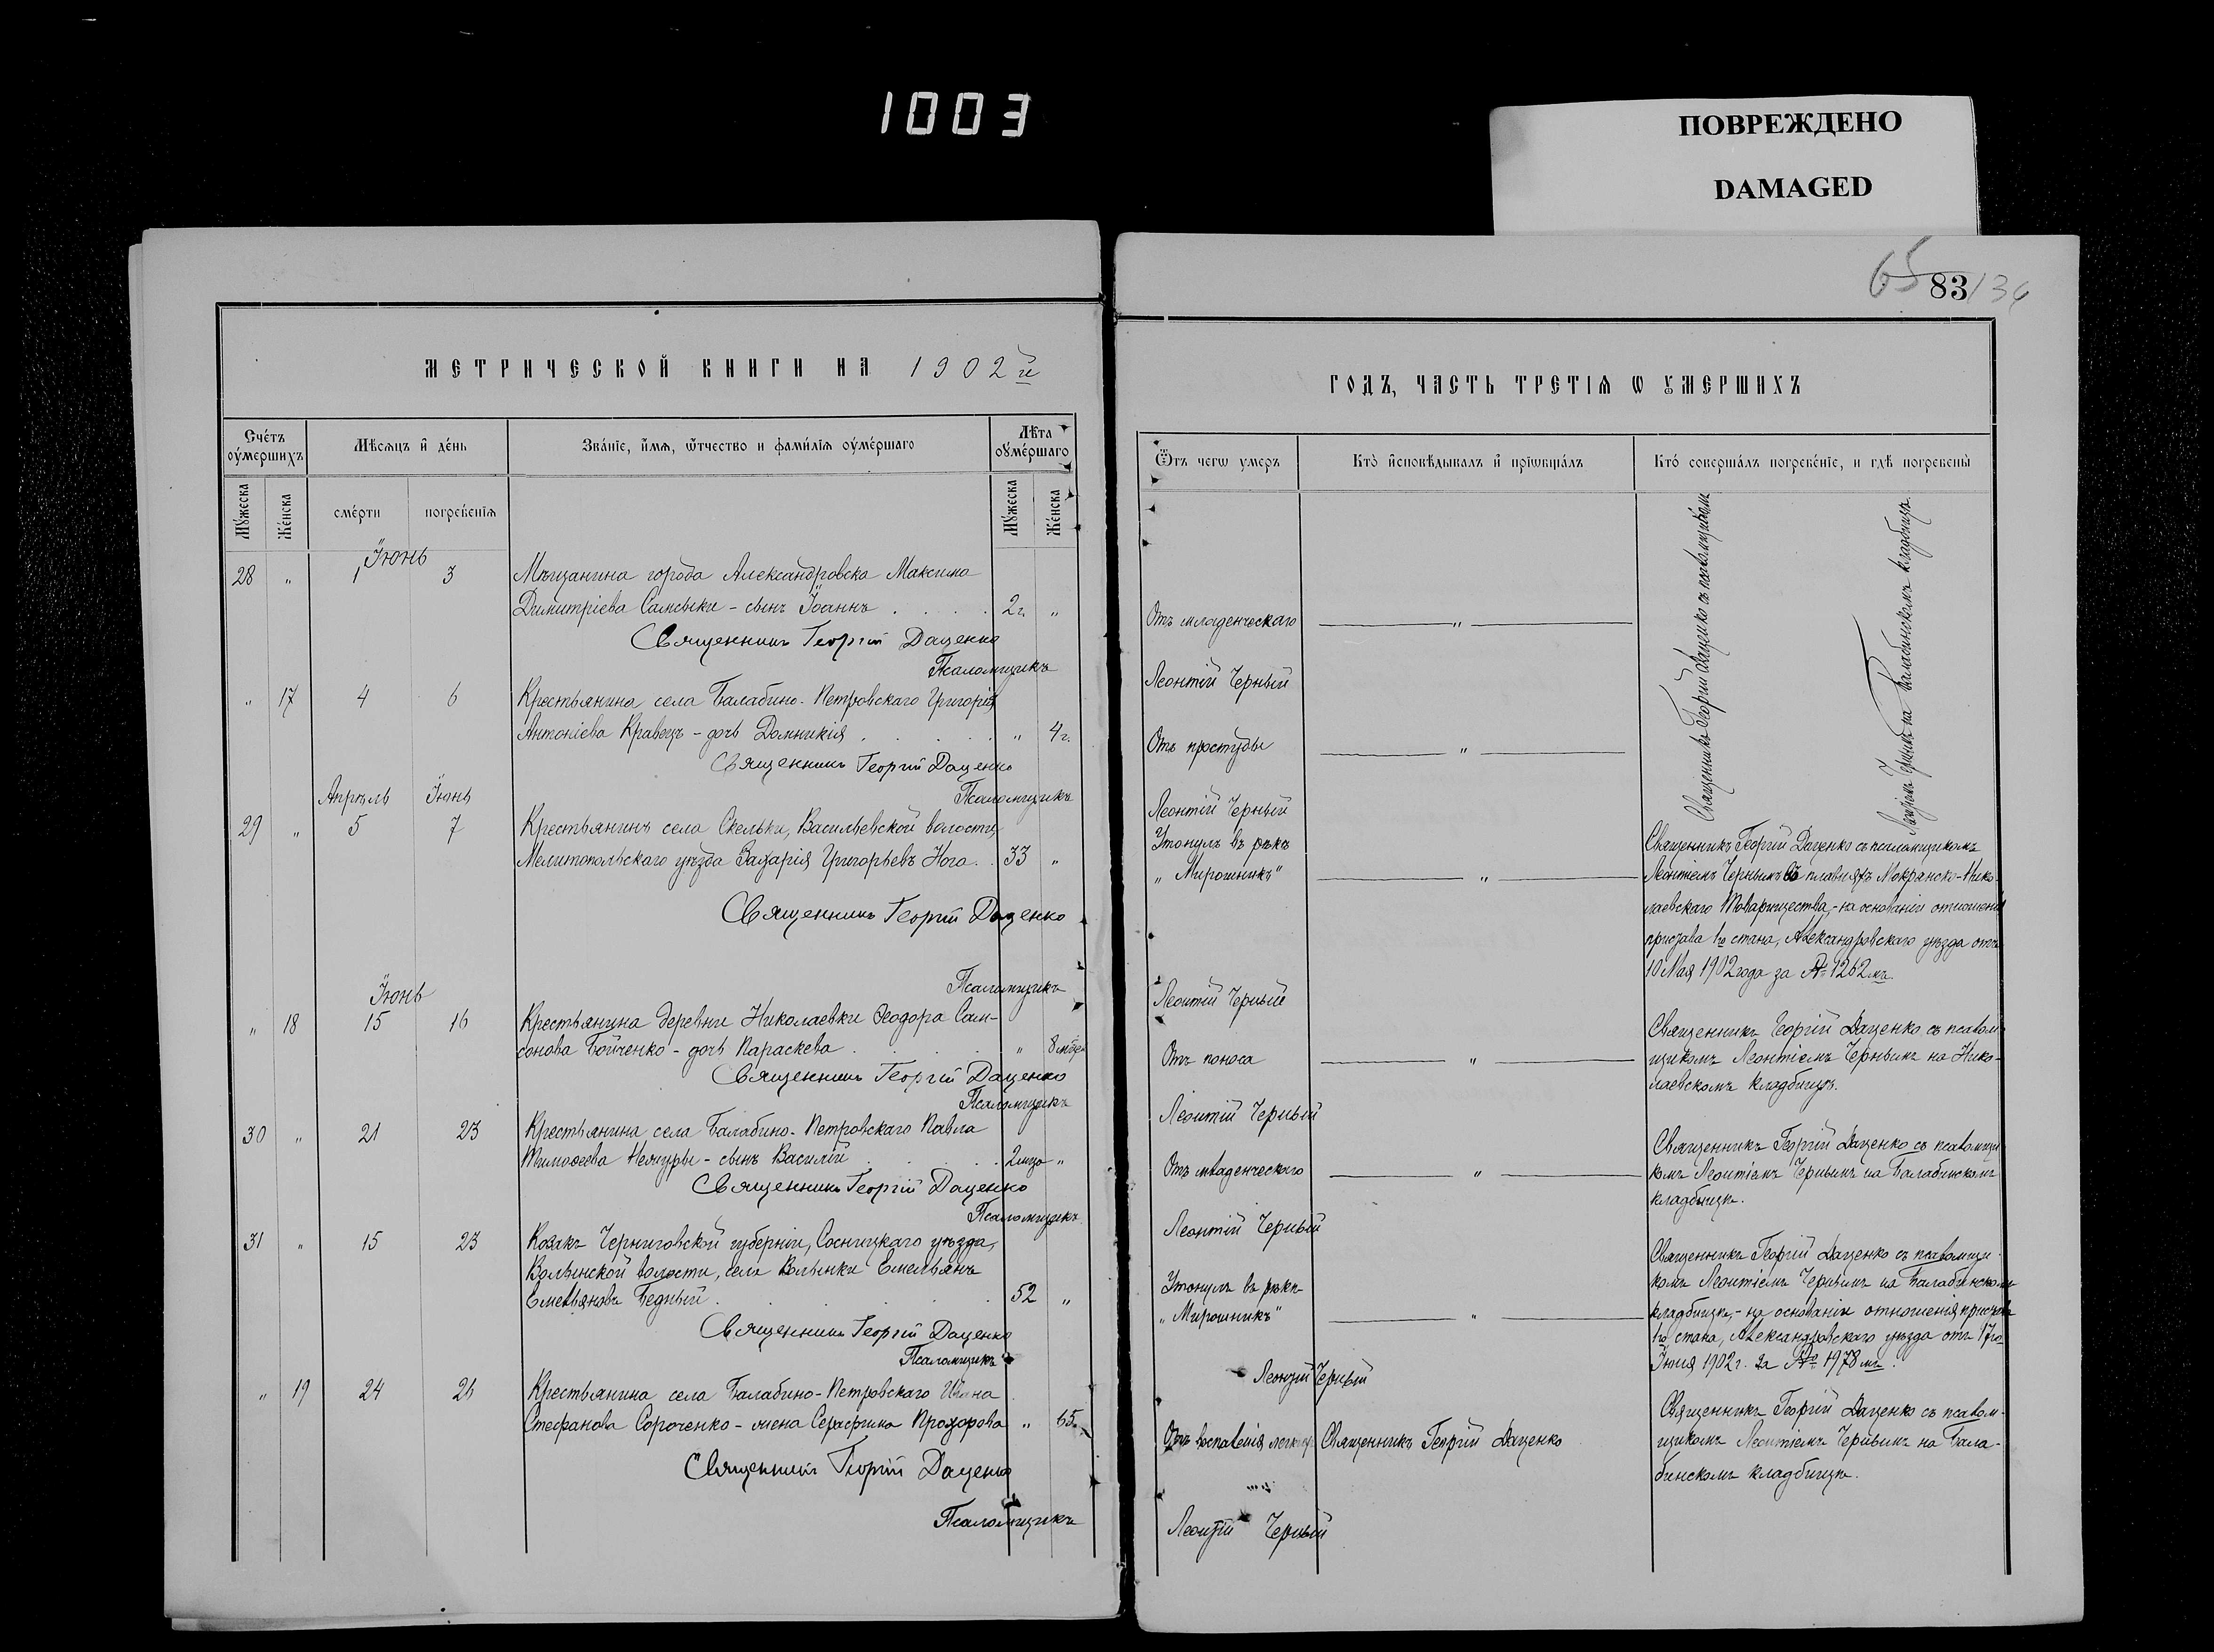 1003
ПОВРЕЖДЕНО
DAMAGED
65 83/136
МЕТРИЧЕСКОЙ КНИГИ НА 1902й
Счéтъ оу҆мершихъ
Мѣсяцъ и҆ дéнь
Звáніе, и҆мя, ѿтчество и фамилія оу҆мéршаго
Лѣта оу҆мéршаго
Мужеска
Жéнска
смéрти
погребéнія
Мужеска
Жéнска
Іюнь
28 " 1 3 Мѣщанина города Александровска Максима
Димитріева Самсыки - сынъ Іоаннъ . . . . 2г. "
Священникъ Георгій Даценко
Псаломщикъ
" 17 4 6 Крестьянина села Балабино-Петровскаго Григорія
Антоніева Кравецъ - дочь Домникія . . . . " 4г.
Священникъ Георгій Даценко
Псаломщикъ
Апрѣль Іюнь
29 " 5 7 Крестьянинъ села Скельки, Васильевской волости,
Мелитопольскаго уѣзда Захарія Григорьевъ Нога . . 33 "
Священникъ Георгій Даценко
Псаломщикъ
Іюнь
" 18 15 16 Крестьянина деревни Николаевки Ѳеодора Сам-
сонова Бойченко - дочь Параскева . . . . " 8
Священникъ Георгій Даценко
Псаломщикъ
30 " 21 23 Крестьянина села Балабино-Петровскаго Павла
Тимоѳеева Нечуры - сынъ Василій . . . . 2мца "
Священникъ Георгій Даценко
Псаломщикъ
31 " 15 23 Козакъ Черниговской губерніи, Сосницкаго уѣзда,
Волынской волости, села Волынки Емельянъ
Емельяновъ Бедный . . . . 52 "
Священникъ Георгій Даценко
Псаломщикъ
" 19 24 26 Крестьянина села Балабино-Петровскаго Ивана
Стефанова Сороченко - жена Серафима Прохорова " 65.
Священникъ Георгій Даценко
Псаломщикъ
ГОДЪ, ЧАСТЬ ТРЕТІЯ Ѡ УМЕРШИХЪ
Ѿтъ чегѡ умеръ
Ктò и҆сповѣдывалъ и҆ прїѡбщáлъ
Ктó совершáлъ погребéніе, и гдѣ погребены̀
Отъ младенческаго — " —
Леонтій Черный
Отъ простуды — " —
Леонтій Черный
Священникъ Георгій Даценко съ псаломщикомъ
Леонтіемъ Чернымъ на Балабинскомъ кладбищѣ.
Утонулъ въ рѣкѣ
„Мирошникъ" — " —
Священникъ Георгій Даценко съ псаломщикомъ
Леонтіемъ Чернымъ въ плавняхъ Мокранско-Нико-
лаевскаго Товарищества, - на основаніи отношенія
пристава 1го стана, Александровскаго уѣзда отъ
10 Мая 1902 года за № 1262мъ.
Леонтій Черный
Отъ поноса — " —
Священникъ Георгій Даценко съ псалом-
щикомъ Леонтіемъ Чернымъ на Нико-
лаевскомъ кладбищѣ.
Леонтій Черный
Отъ младенческаго — " —
Священникъ Георгій Даценко съ псаломщи-
комъ Леонтіемъ Чернымъ на Балабинскомъ
кладбищѣ.
Леонтій Черный
Утонулъ въ рѣкѣ
„Мирошникъ" — " —
Священникъ Георгій Даценко съ псаломщи-
комъ Леонтіемъ Чернымъ на Балабинскомъ
кладбищѣ, - на основаніи отношенія пристава
1го стана, Александровскаго уѣзда отъ 17го
Іюня 1902г. за № 1978мъ.
Леонтій Черный
Отъ воспаленія легкихъ Священникъ Георгій Даценко
Священникъ Георгій Даценко съ псалом-
щикомъ Леонтіемъ Чернымъ на Бала-
бинскомъ кладбищѣ.
Леонтій Черный